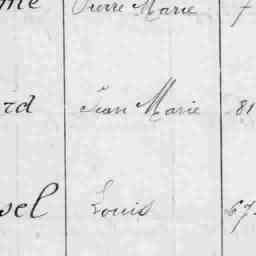 Pierre Marie 7
rd Jean Marie 81
sel Louis 67